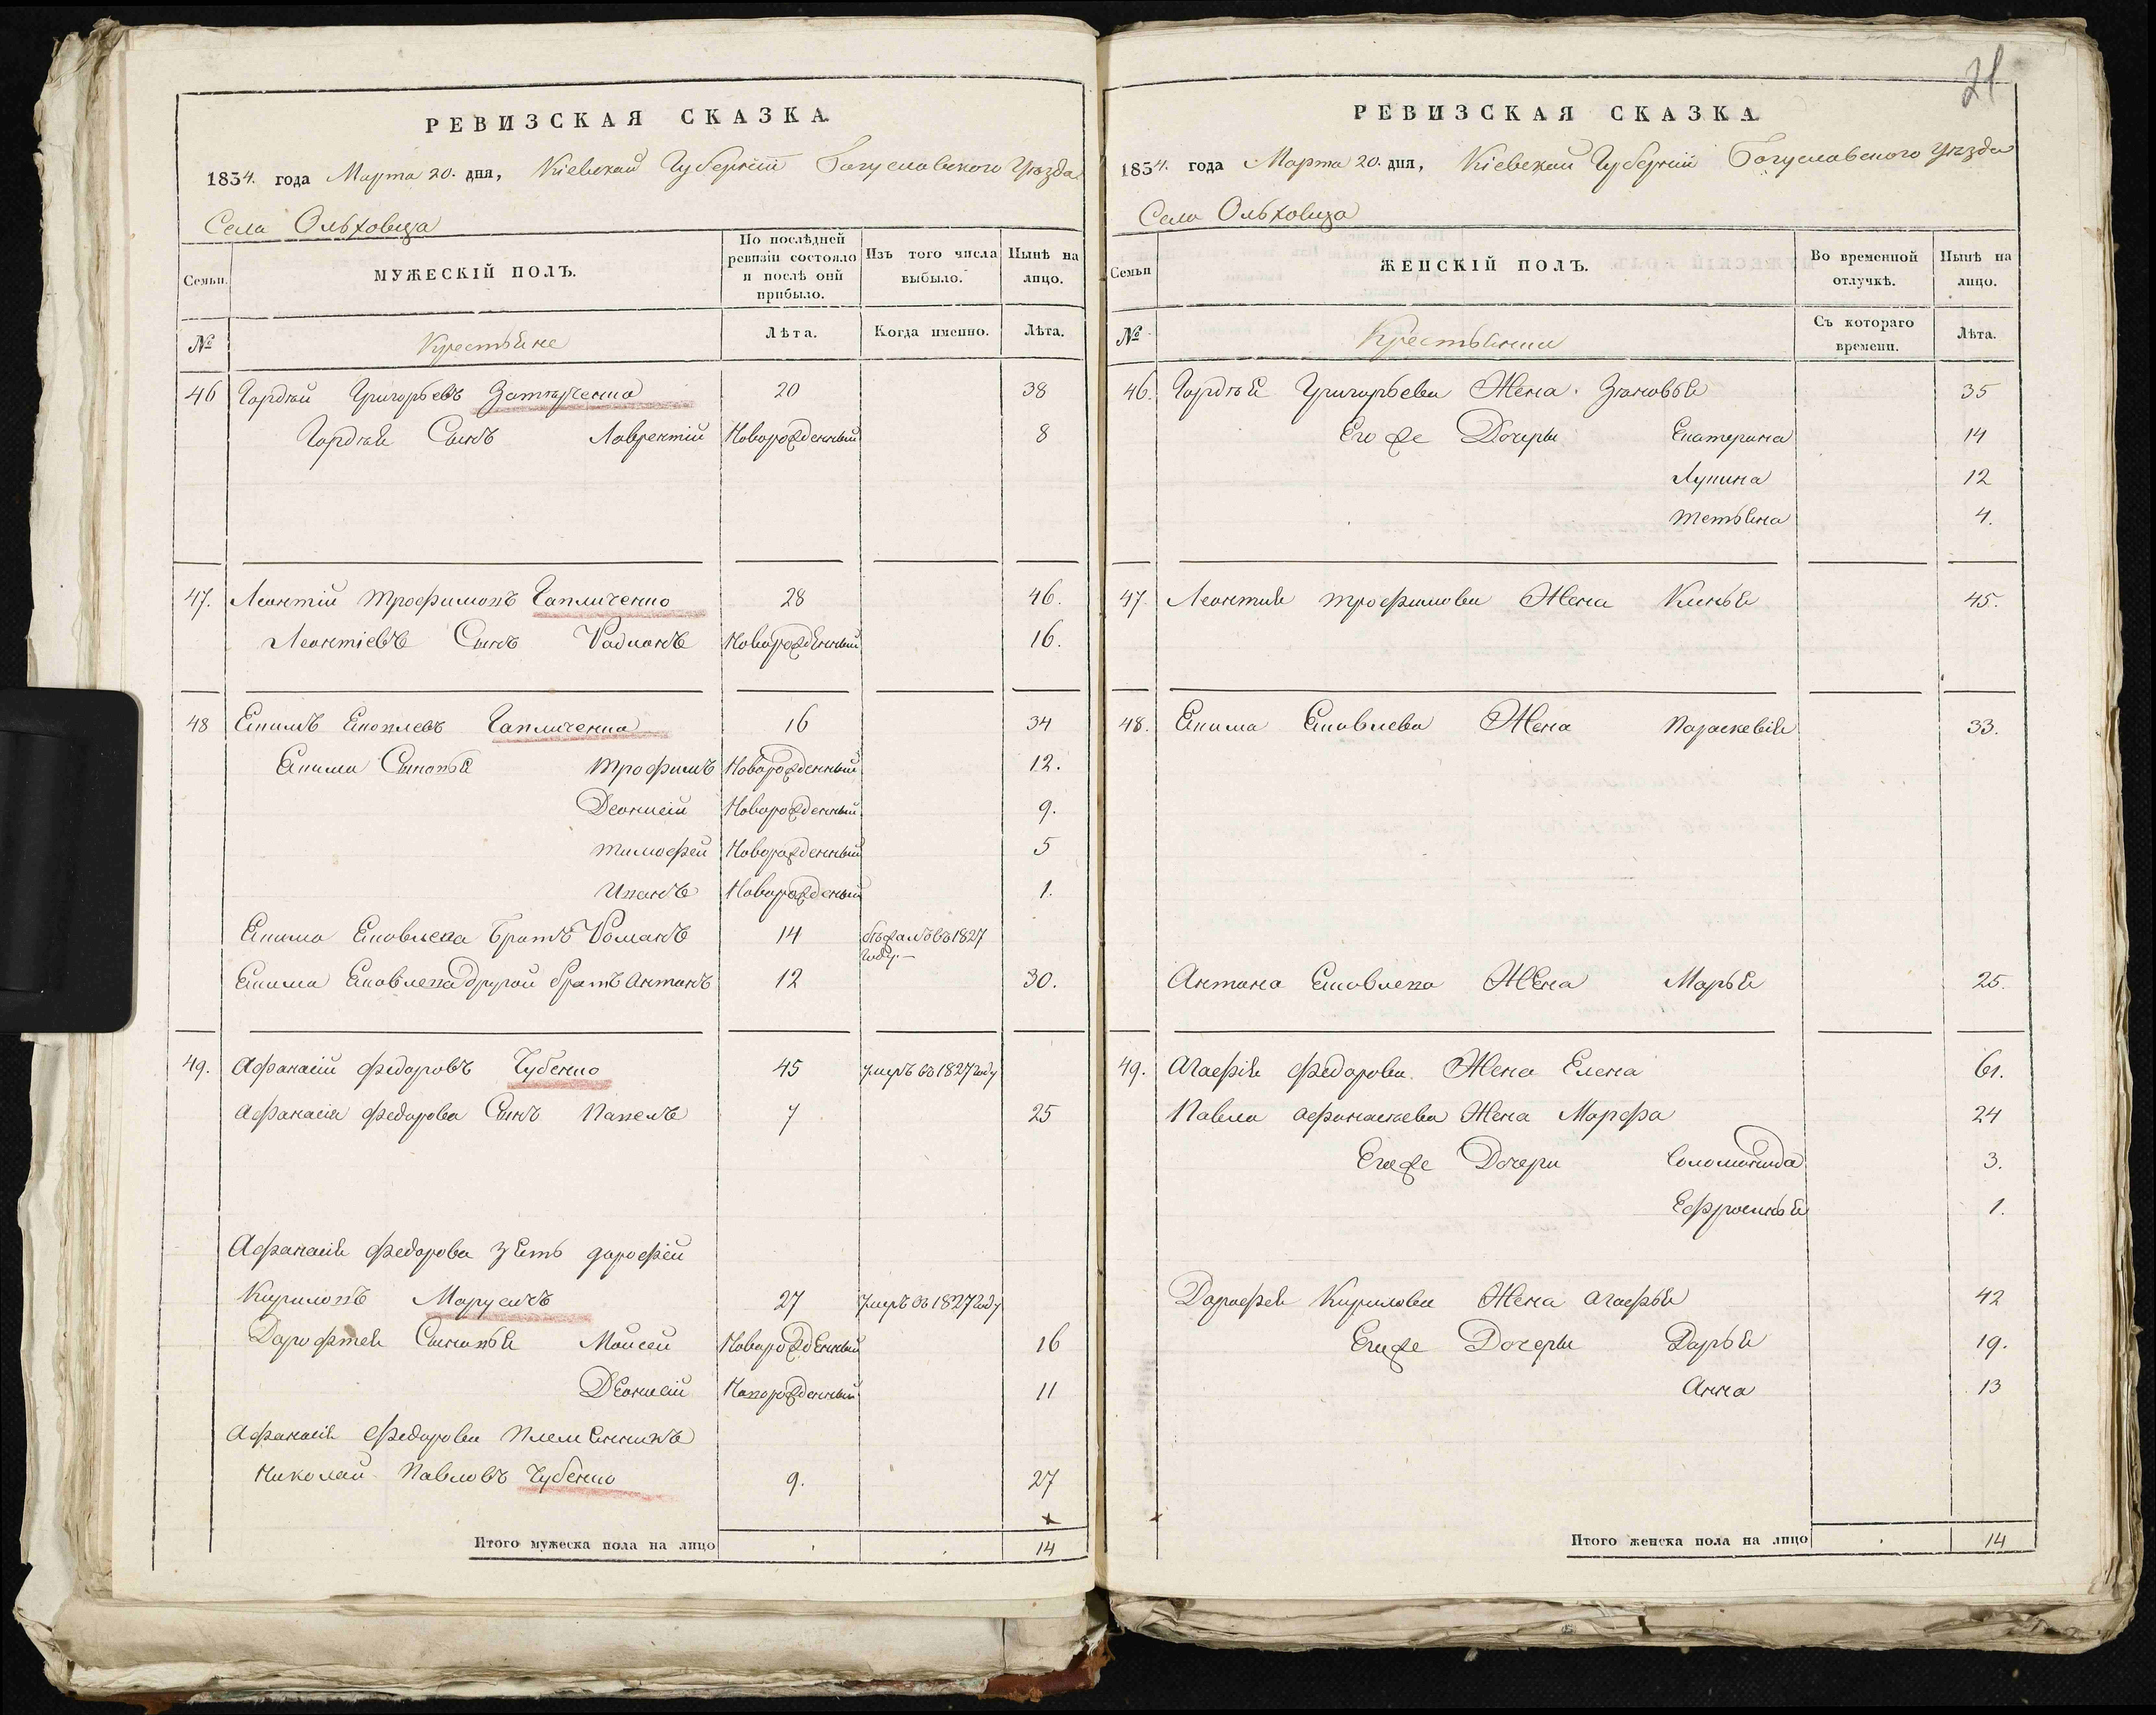 РЕВИЗСКАЯ СКАЗКА
1834. года Марта 20. дня, Кіевской Губерніи Богуславского Уѣзда
Села Ольховца
Семьи.
МУЖЕСКІЙ ПОЛЪ.
По послѣдней ревизіи состояло и послѣ оній прибыло.
Изъ того числа выбыло.
Нынѣ на лицо.
№
Крестьяне
Лѣта.
Когда именно.
Лѣта.
46 Гордѣй Григорьевъ 20 38
Гордѣя Сынъ Лаврентій Новорожденный 8
47. Леонтій Трофимовъ Гапличенко 28 46.
Леонтіевъ Сынъ Радионъ Новорожденный 16.
48 Якимъ Яковлевъ Гапличенко 16 34
Якима Сыновья Трофимъ Новорожденный 12.
Деонисій Новорожденный 9.
Тимофей Новорожденный 5
Иванъ Новорожденый 1.
Якима Яковлева Братъ Романъ 14 бѣжалъ въ 1827
году.
Якима Яковлева другой братъ Антонъ 12 30.
49. Афанасій Федоровъ Чубенко 45 умеръ въ 1827 году
Афанасія Федорова Сынъ Павелъ 7 25
Афанасія Федорова зять дорофей
Кириловъ Марусичъ 27 умеръ въ 1827 году
Дорофтея Сыновья Моисей Новорожденный 16
Деонисій Новорожденный 11
Афанасія Федорова Племянникъ
Николай Павловъ Чубенко 9. 27
х
Итого мужеска пола на лицо 14
21
РЕВИЗСКАЯ СКАЗКА
1834. года Марта 20. дня, Кіевской Губерніи Богуславского Уѣзда
Села Ольховца
Семьи
ЖЕНСКІЙ ПОЛЪ.
Во временной отлучкѣ.
Нынѣ на лицо.
№
Крестьянки
Съ котораго времени.
Лѣта.
46. Гордѣя Григорьева Жена. Зѣновья 35
Его же Дочеры Екатерина 14
Лукина 12
Тетьяна 4.
47. Леонтия Трофимова Жена Ксенья 45.
48. Якима Яковлева Жена Параскевія 33.
Антона Яковлева Жена Марья 25.
49. Агафія Федорова Жена Елена 61.
Павла Афанасьева Жена Марфа 24
Егоже Дочери Соломонида 3.
Ефросинья 1.
Дорофея Кирилова Жена Агафья 42
Егоже Дочеры Дарья 19.
Анна 13
Итого женска пола на лицо 14